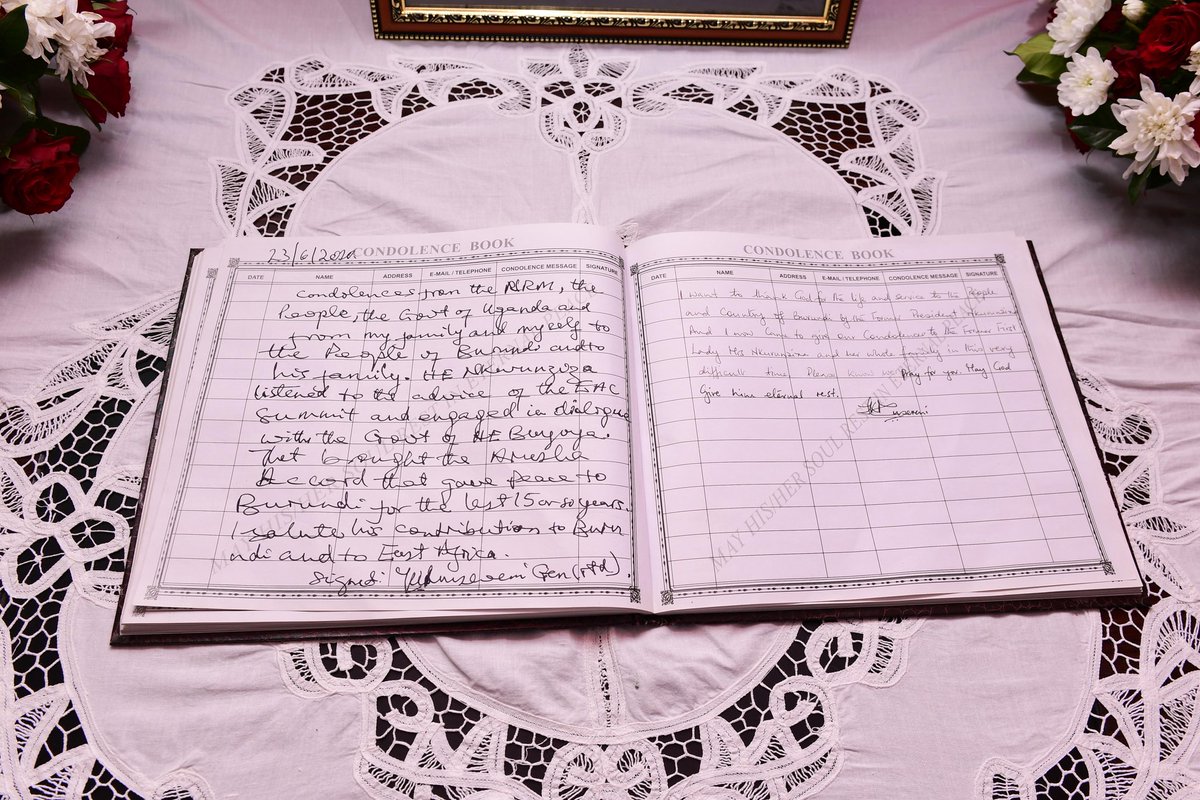 23/6/2020
CONDOLENCE BOOK
DATE NAME ADDRESS E-MAIL / TELEPHONE CONDOLENCE MESSAGE SIGNATURE
Condolences from the NRM, the
People, the Govt of Uganda and
from my family and myself to
the People of Burundi and to
his family. HE Nkurunziza
listened to the advice of the EAC
Summit and engaged in dialogue
with the Govt of HE Buyoya.
That brought the Arusha
Accord that gave peace to
Burundi for the last 15 or so years.
I salute his contribution to Buru
ndi and to East Africa.
Signed: Museveni Gen (rtd).
CONDOLENCE BOOK
DATE NAME ADDRESS E-MAIL / TELEPHONE CONDOLENCE MESSAGE SIGNATURE
I want to thank God for the life and service to the People
and Country of Burundi by the Former President Nkurunziza
And I now want to give our Condolences to the Former First
Lady Mrs Nkurunziza and her whole family in this very
difficult time. Please know we Pray for you. May God
Give him eternal rest.
Museveni
MAY HIS/HER SOUL REST IN